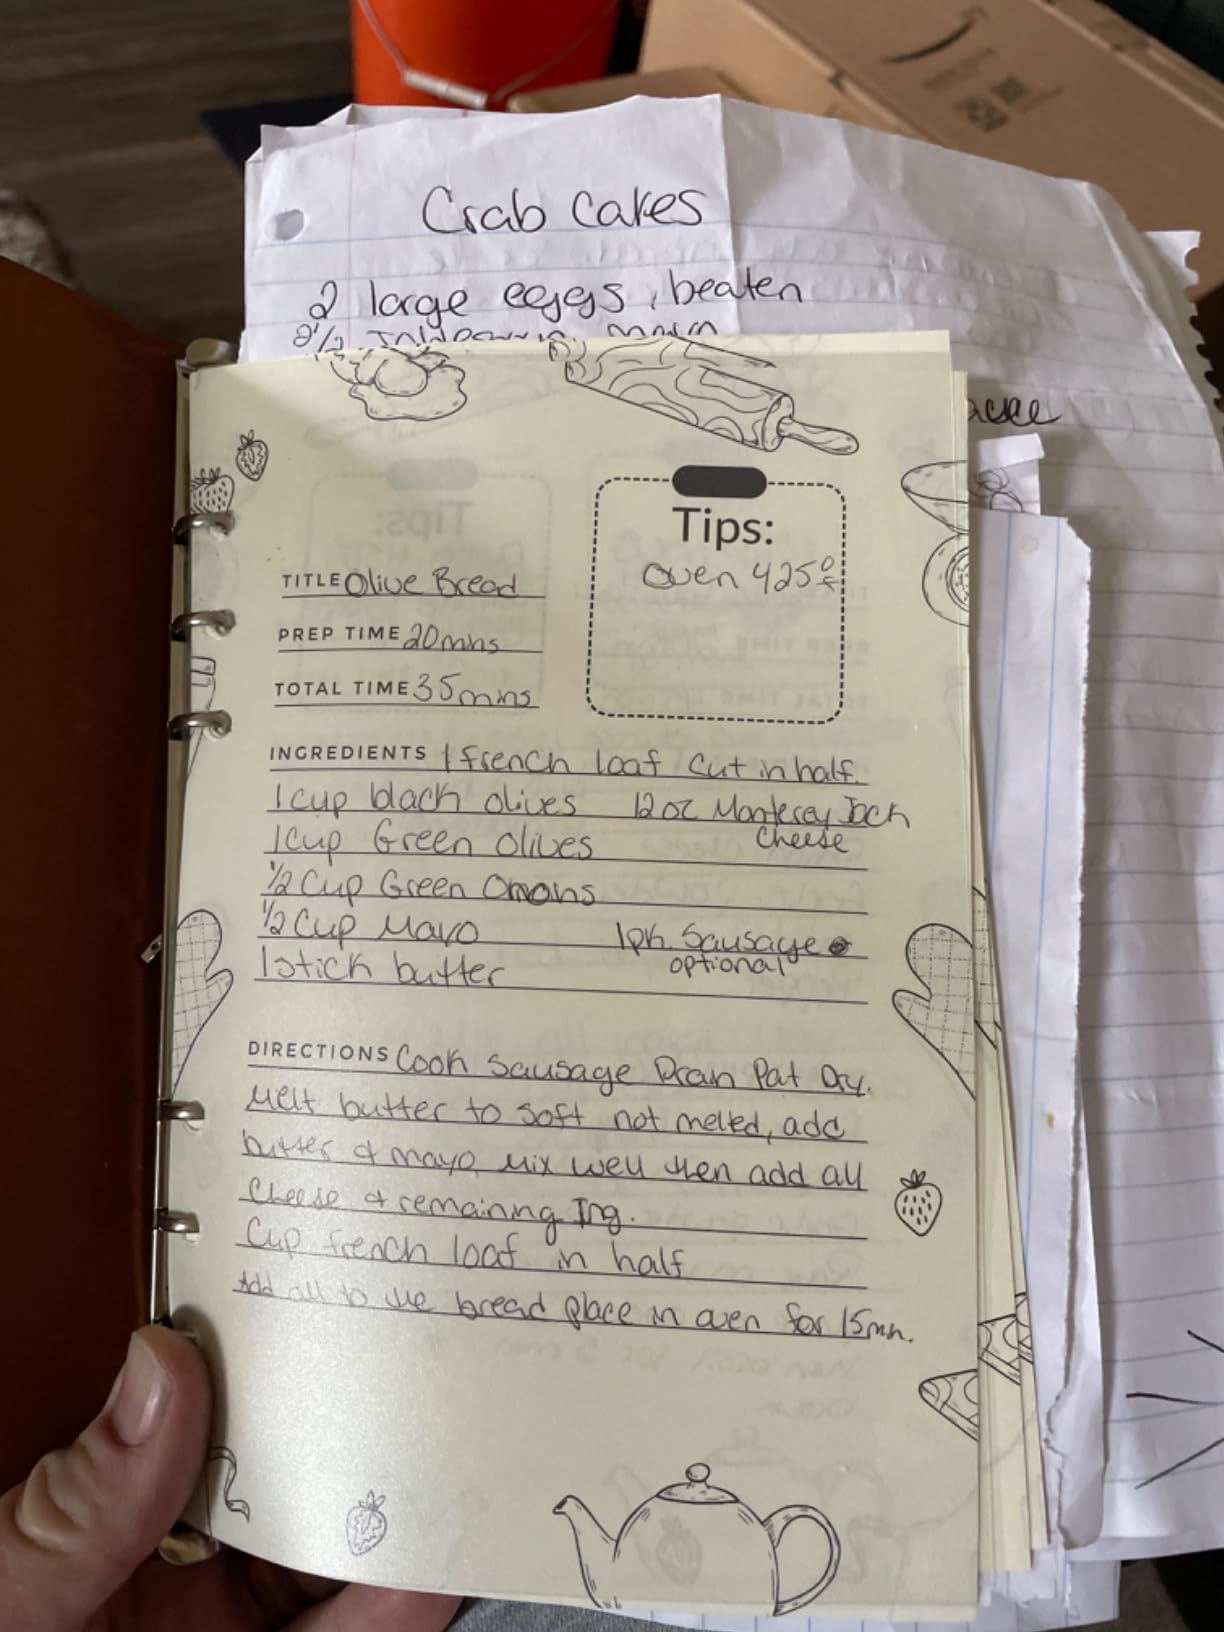 Crab Cakes
2 large eggs, beaten
2 1/2
Tips:
Oven 425°F
TITLE Olive Bread
PREP TIME 20 mins
TOTAL TIME 35 mins
INGREDIENTS 1 french loaf cut in half.
1 cup black olives 12 oz Monterey Jack
Cheese
1 cup Green Olives
1/2 Cup Green Onions
1/2 Cup Mayo 1 pk. Sausage
optional
1 stick butter
DIRECTIONS Cook Sausage Drain Pat Dry.
Melt butter to soft not melted, add
butter & mayo, mix well then add all
Cheese & remaining Ing.
Cup french loaf in half
Add all to the bread place in oven for 15 mn.